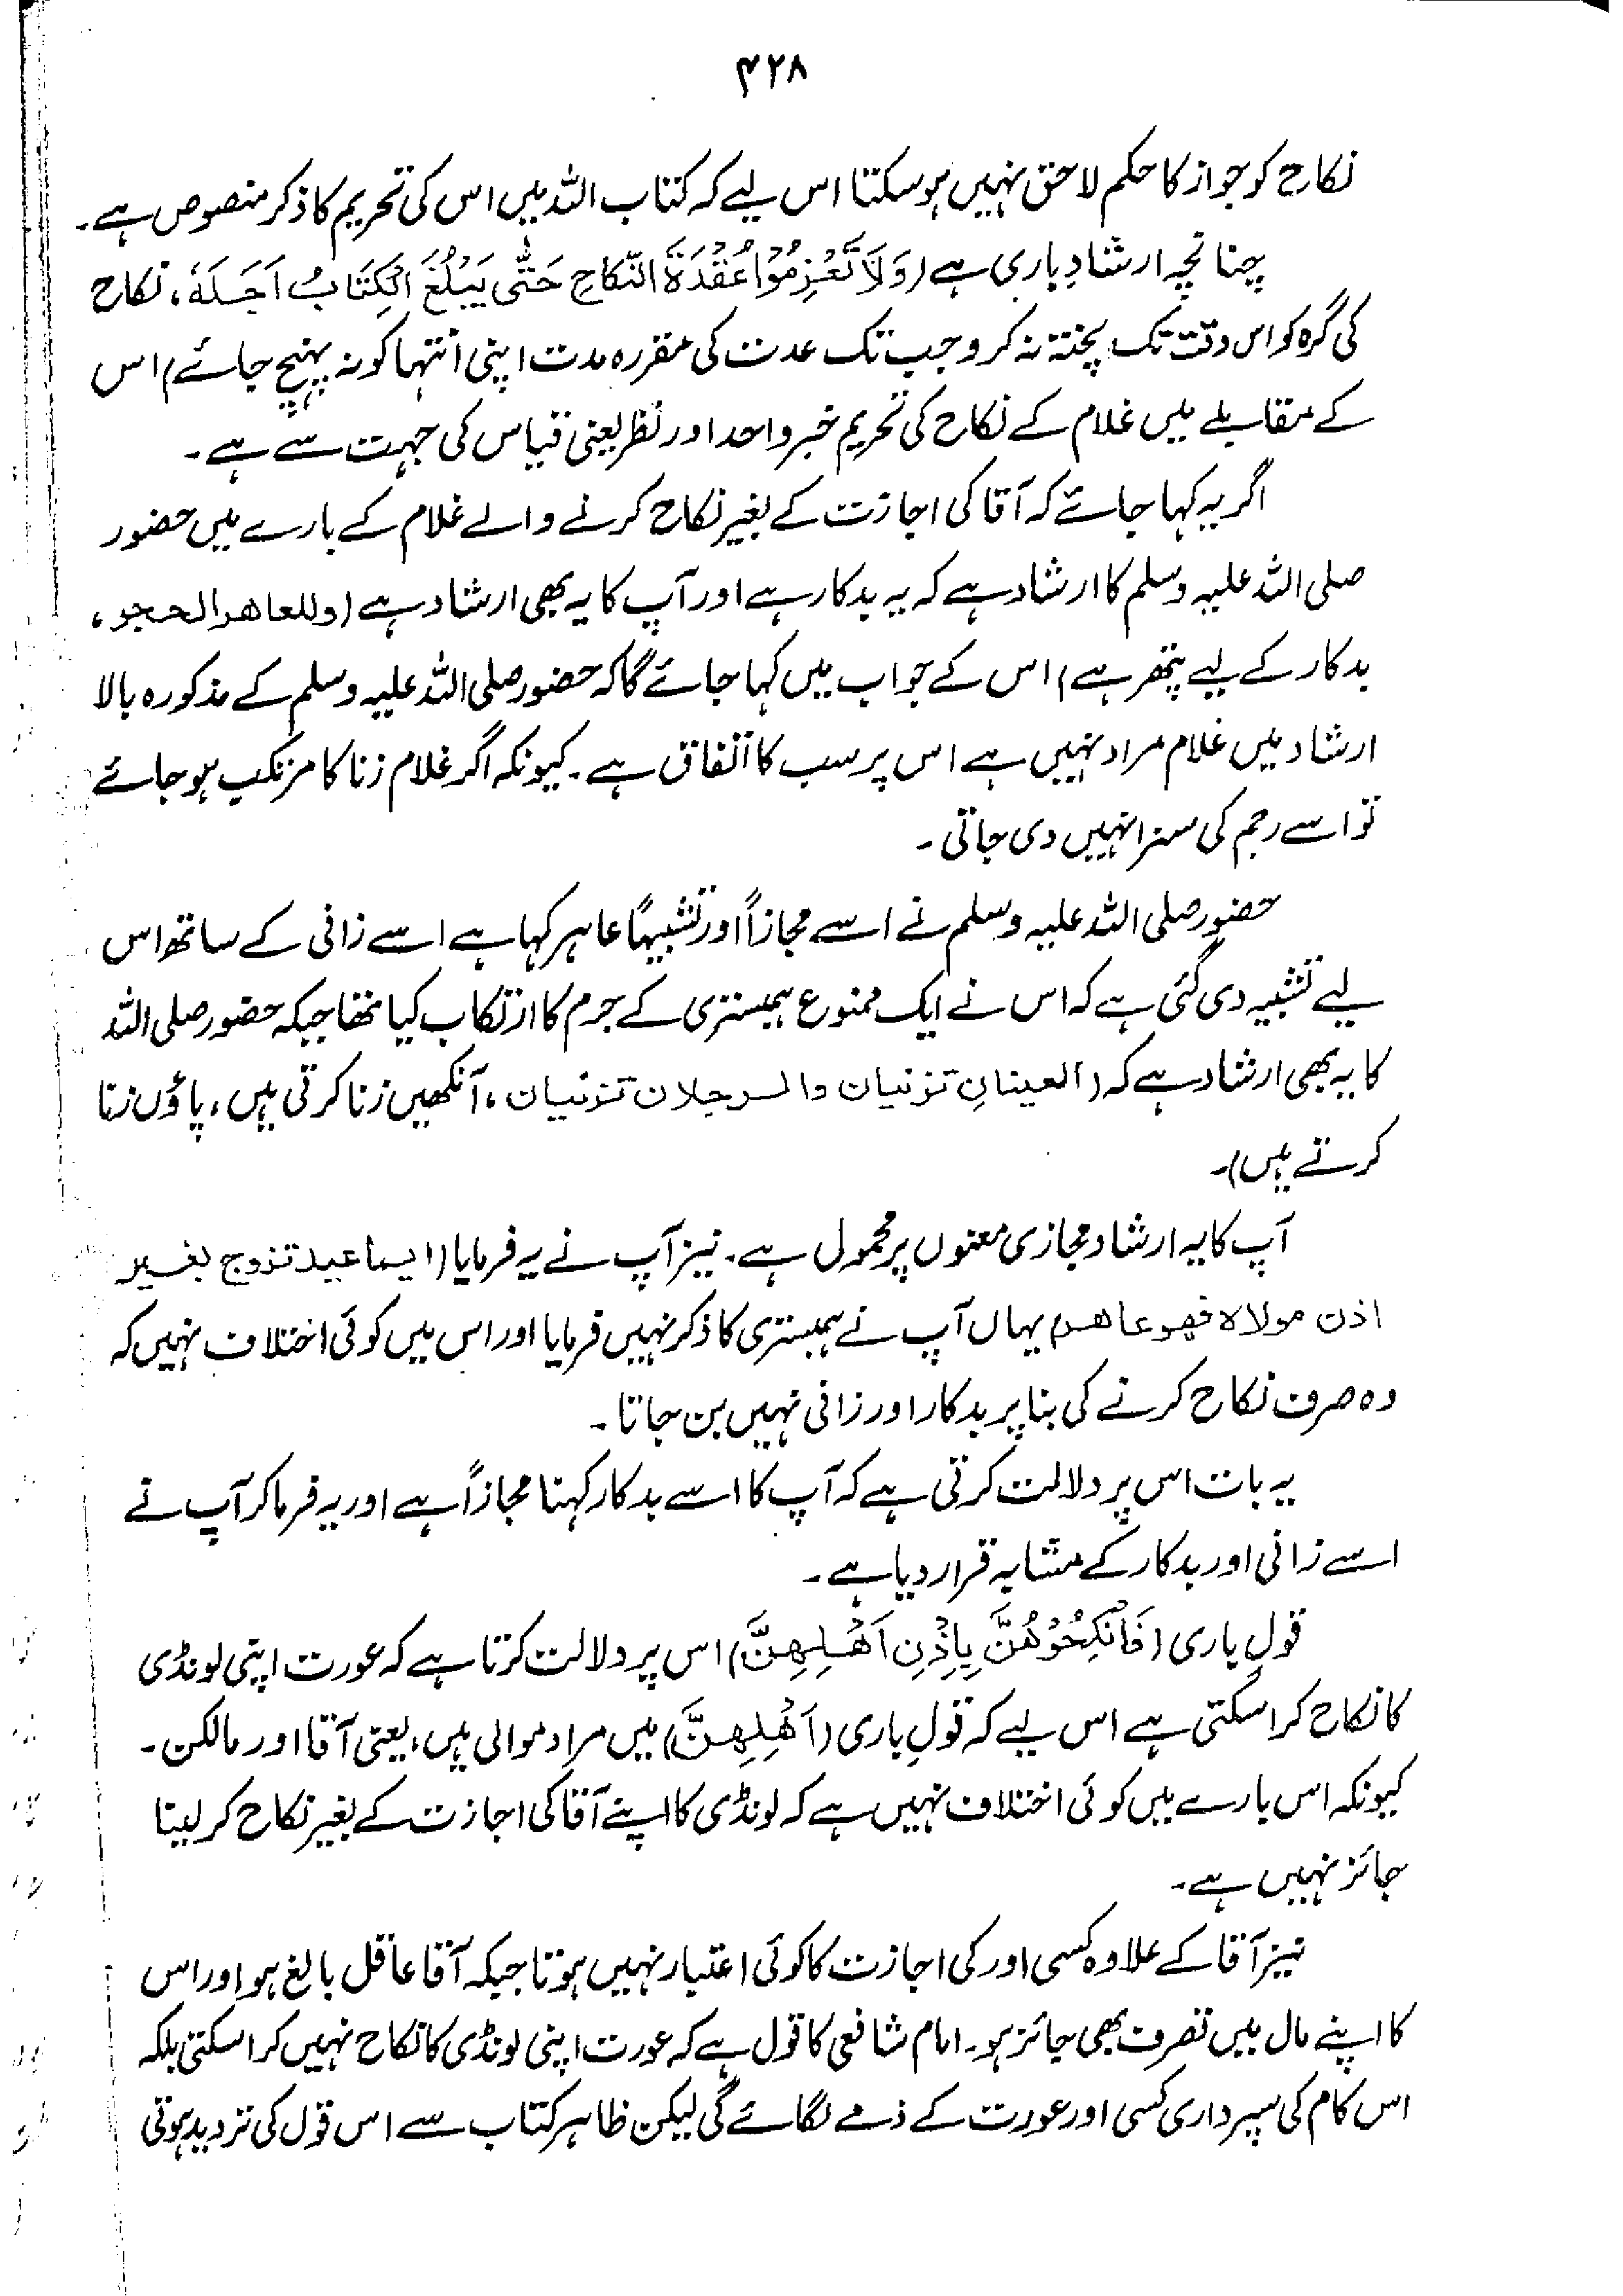 ۴۲۸
نکاح کو جواز کا حکم لاحق نہیں ہو سکتا اس لیے کہ کتاب اللہ میں اس کی تحریم کا ذکر منصوص ہے۔
چنانچہ ارشادِ باری ہے (وَلَا تَعْزِمُوْا عُقْدَةَ النِّكَاحِ حَتّٰى يَبْلُغَ الْكِتَابُ اَجَلَهٗ، نکاح
کی گرہ کو اس وقت تک پختہ نہ کرو جب تک عدت کی مقررہ مدت اپنی انتہا کو نہ پہنچ جائے) اس
کے مقابلے میں غلام کے نکاح کی تحریم خبر واحد اور نظر یعنی قیاس کی جہت سے ہے۔
اگر یہ کہا جائے کہ آقا کی اجازت کے بغیر نکاح کرنے والے غلام کے بارے میں حضور
صلی اللہ علیہ وسلم کا ارشاد ہے کہ یہ بدکار ہے اور آپ کا یہ بھی ارشاد ہے (وللعاهر الحجر،
بدکار کے لیے پتھر ہے) اس کے جواب میں کہا جائے گا کہ حضور صلی اللہ علیہ وسلم کے مذکورہ بالا
ارشاد میں غلام مراد نہیں ہے اس پر سب کا اتفاق ہے۔ کیونکہ اگر غلام زنا کا مرتکب ہو جائے
تو اسے رجم کی سزا نہیں دی جاتی۔
حضور صلی اللہ علیہ وسلم نے اسے مجازاً اور تشبیہاً عاہر کہا ہے اسے زانی کے ساتھ اس
لیے تشبیہ دی گئی ہے کہ اس نے ایک ممنوع ہمبستری کے جرم کا ارتکاب کیا تھا جبکہ حضور صلی اللہ
کا یہ بھی ارشاد ہے کہ (العینانِ تزنیان والرجلان تزنیان، آنکھیں زنا کرتی ہیں، پاؤں زنا
کرتے ہیں)۔
آپ کا یہ ارشاد مجازی معنوں پر محمول ہے۔ نیز آپ نے یہ فرمایا (ایما عبد تزوج بغیر
اذن مولاه فهو عاهر) یہاں آپ نے ہمبستری کا ذکر نہیں فرمایا اور اس میں کوئی اختلاف نہیں کہ
وہ صرف نکاح کرنے کی بنا پر بدکار اور زانی نہیں بن جاتا۔
یہ بات اس پر دلالت کرتی ہے کہ آپ کا اسے بدکار کہنا مجازاً ہے اور یہ فرما کر آپ نے
اسے زانی اور بدکار کے مشابہ قرار دیا ہے۔
قولِ باری (فَانْكِحُوْهُنَّ بِاِذْنِ اَهْلِهِنَّ) اس پر دلالت کرتا ہے کہ عورت اپنی لونڈی
کا نکاح کرا سکتی ہے اس لیے کہ قولِ باری (اَهْلِهِنَّ) میں مراد موالی ہیں، یعنی آقا اور مالکن۔
کیونکہ اس بارے میں کوئی اختلاف نہیں ہے کہ لونڈی کا اپنے آقا کی اجازت کے بغیر نکاح کر لینا
جائز نہیں ہے۔
نیز آقا کے علاوہ کسی اور کی اجازت کا کوئی اعتبار نہیں ہوتا جبکہ آقا عاقل بالغ ہو اور اس
کا اپنے مال میں تصرف بھی جائز ہو۔ امام شافعی کا قول ہے کہ عورت اپنی لونڈی کا نکاح نہیں کرا سکتی بلکہ
اس کام کی سپرداری کسی اور عورت کے ذمے لگائے گی لیکن ظاہر کتاب سے اس قول کی تردید ہوتی